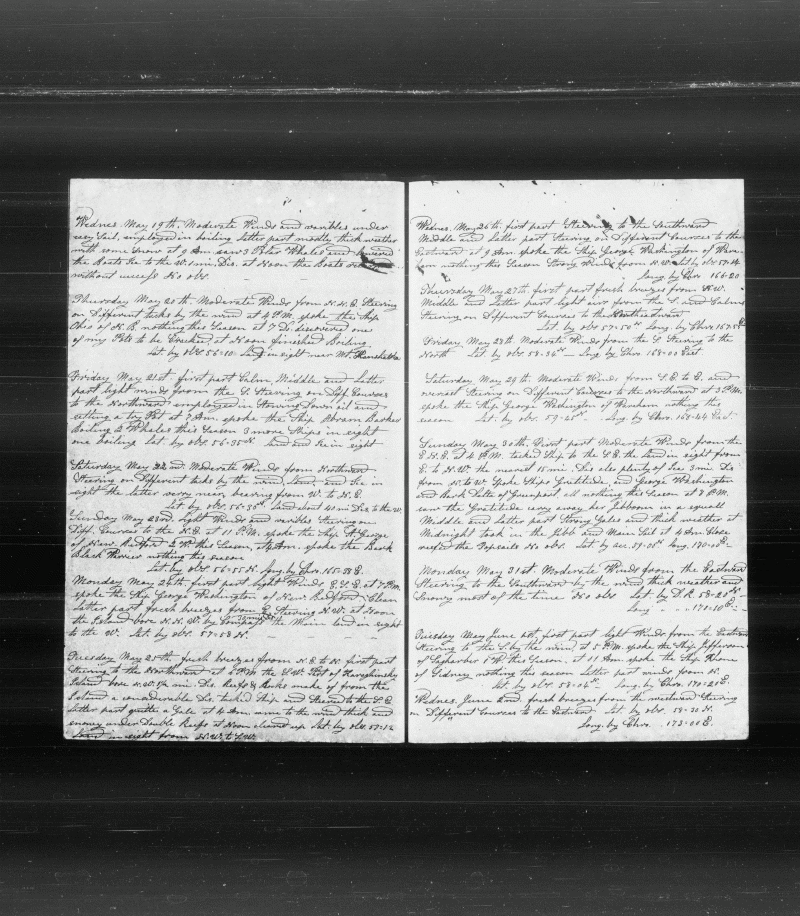 Wednes. May 19th, Moderate Winds and varibles under
easy Sail, employed in boiling latter part mostly thick weather
with some Snow at 9 Am saw 3 Polar Whales and lowered
the Boats Ice to the W. 10 mi. Dis. at Noon the Boats
without success No obs.
Thursday May 20th Moderate Winds from N.N.E. Steering
on Different tacks by the wind at 4 P.M. spoke the Ship
Ohio of N.B. nothing this Season at 7 Do discovered one
of my Pots to be Cracked, at Noon finished Boiling
Lat by obs. 56=10. Land in sight near Mt.
Friday May 21st. first part Calm, Middle and Latter
part light winds from the S. Steering on Diff. Courses
to the Northward employed in Stowing Down oil and
setting a try Pot at 7 Am. spoke the Ship Abram Barker
Boiling 2 Whales this Season 3 more Ships in sight
one boiling Lat. by obs. 56=35 N. Land and Ice in sight
Saturday May 22nd. Moderate Winds from Northward
Steering on Different tacks by the wind, Land, and Ice in
sight the latter very near bearing from W. to N.E.
Lat. by obs. 56=35 N. Land about 40 mi Dis. to the W.
Sunday May 23rd light Winds and varibles Steering on
Diff. Courses to the N.E. at 11 P.M. spoke the Ship St. George
of New Bedford 2 Wh. this Season, 4 Am. spoke the Bark
Black Warrior nothing this season
Lat. by obs. 56=55 N. Long. by Chro. 165=58 E.
Monday May 24th first part light Winds E.S.E. at 7 P.M.
spoke the Ship George Washington of New Bedford Clean
Latter part fresh breezes from E Steering N.W. at Noon
the Island bore N.N.W. by Compass the Main land in sight
to the W. Lat. by obs. 57=58 N.
Tuesday May 25th fresh breezes from N.E. to N. first part
Steering to the Northward at 4 P.M. the S.W. Pt. of
Island bore N.W. 7/4 mi. Dis. Reefs & Rocks make of from the
Island a considerable Dis. tacked Ship and Steered to the S.E.
Latter part quite a Gale at 4 Am. wore to the wind thick and
snowy under Double Reefs at Noon cleared up Lat. by obs. 57=12
Land in sight from N.W. to S.W.
Wednes. May 26th. first part Steering to the Southward
Middle and Latter part Steering on Different Courses to the
Eastward at 9 Am. spoke the Ship George Washington of Ware-
ham nothing this Season Strong Winds from N.W. Lat by obs. 57=14
Long. by Chro 166=20
Thursday May 27th first part fresh breezes from N.W.
Middle and Latter part light airs from the S. and Calms
Steering on Different Courses to the Northeastward
Lat. by obs. 57=50 N. Long. by Chro. 167=58 E
Friday May 28th Moderate Winds from the S. Steering to the
North Lat. by obs. 58=36 N. Long. by Chro. 168=00 East
Saturday May 29th. Moderate Winds from S.E. to E. and
overcast Steering on Different Courses to the Northward at 3 P.M.
spoke the Ship George Washington of Wareham nothing this
season Lat. by obs. 59=25 N. Long. by Chro. 168=44 East.
Sunday May 30th. First part Moderate Winds from the
E.N.E. at 4 P.M. tacked Ship to the S.E. the Land in sight from
E. to N.W. the nearest 15 mi. Dis. also plenty of Ice 3 mi. Dis.
from N. to W. Spoke Ships Gratitude, and George Washington
and Bark Delta of Greenport all nothing this Season at 8 P.M.
saw the Gratitude carry away her Jibboom in a squall
Middle and Latter part Strong Gales and thick weather at
Midnight took in the Jibb and Main Sail at 4 Am. Close
reefed the Topsails No obs. Lat. by acc. 59=05 N. Long. 170=00 E.
Monday May 31st. Moderate Winds from the Eastward
Steering to the Southward by the wind thick weather and
Snowy most of the time No obs Lat. by D.R. 58=20 N.
Long " " 170=10 E.
Tuesday May June 1st, first part light Winds from the Eastward
Steering to the S. by the wind, at 5 P.M. spoke the Ship Jefferson
of Sagharbor 1 Wh. this Season. at 11 Am. spoke the Ship
of Sidney nothing this season Latter part wind from N.
Lat. by obs. 58=04 N. Long. by Chro. 170=20 E.
Wednes. June 2nd, fresh breezes from the westward Steering
on Different Courses to the Eastward Lat. by obs. 58=30 N.
Long. by Chro. 173=00 E.